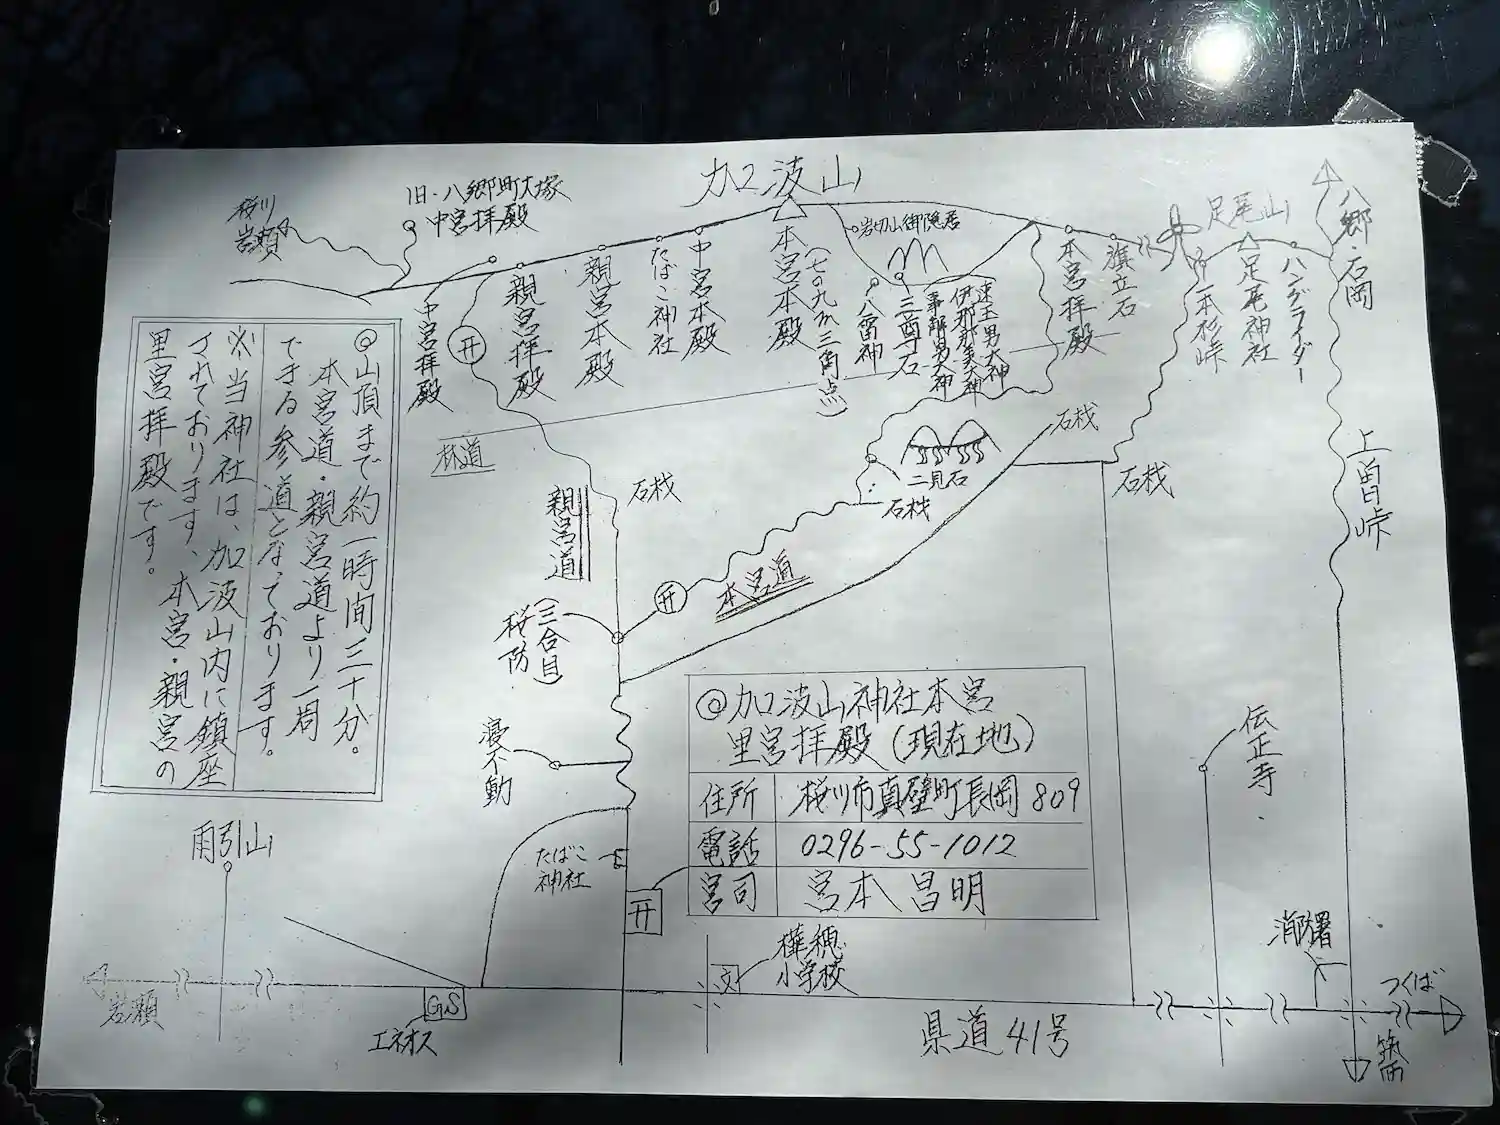 加波山
旧・八郷町大塚
中宮拝殿
桜川
岩瀬
中宮拝殿
親宮拝殿
親宮本殿
たばこ神社
中宮本殿
本宮本殿
(七〇九m三角点)
岩切山御隠居
八雷神
三尊石
事解男大神
伊那那美大神
速玉男大神
本宮拝殿
旗立石
足尾山
一本杉峠
足尾神社
ハングライダー
八郷・石岡
上曽峠
◎山頂まで約一時間三十分。
本宮道・親宮道より一周
できる参道となっております。
※当神社は、加波山内に鎮座
されております、本宮・親宮の
里宮拝殿です。
林道
親宮道
石桟
二見石
石桟
石桟
石桟
本宮道
(三合目)
桜防
不動
◎加波山神社本宮
里宮拝殿(現在地)
住所 桜川市真壁町長岡809
電話 0296-55-1012
宮司 宮本 昌明
伝正寺
雨引山
たばこ
神社
开
樺穂
小学校
文
消防署
つくば
筑西
岩瀬
GS
エネオス
県道41号